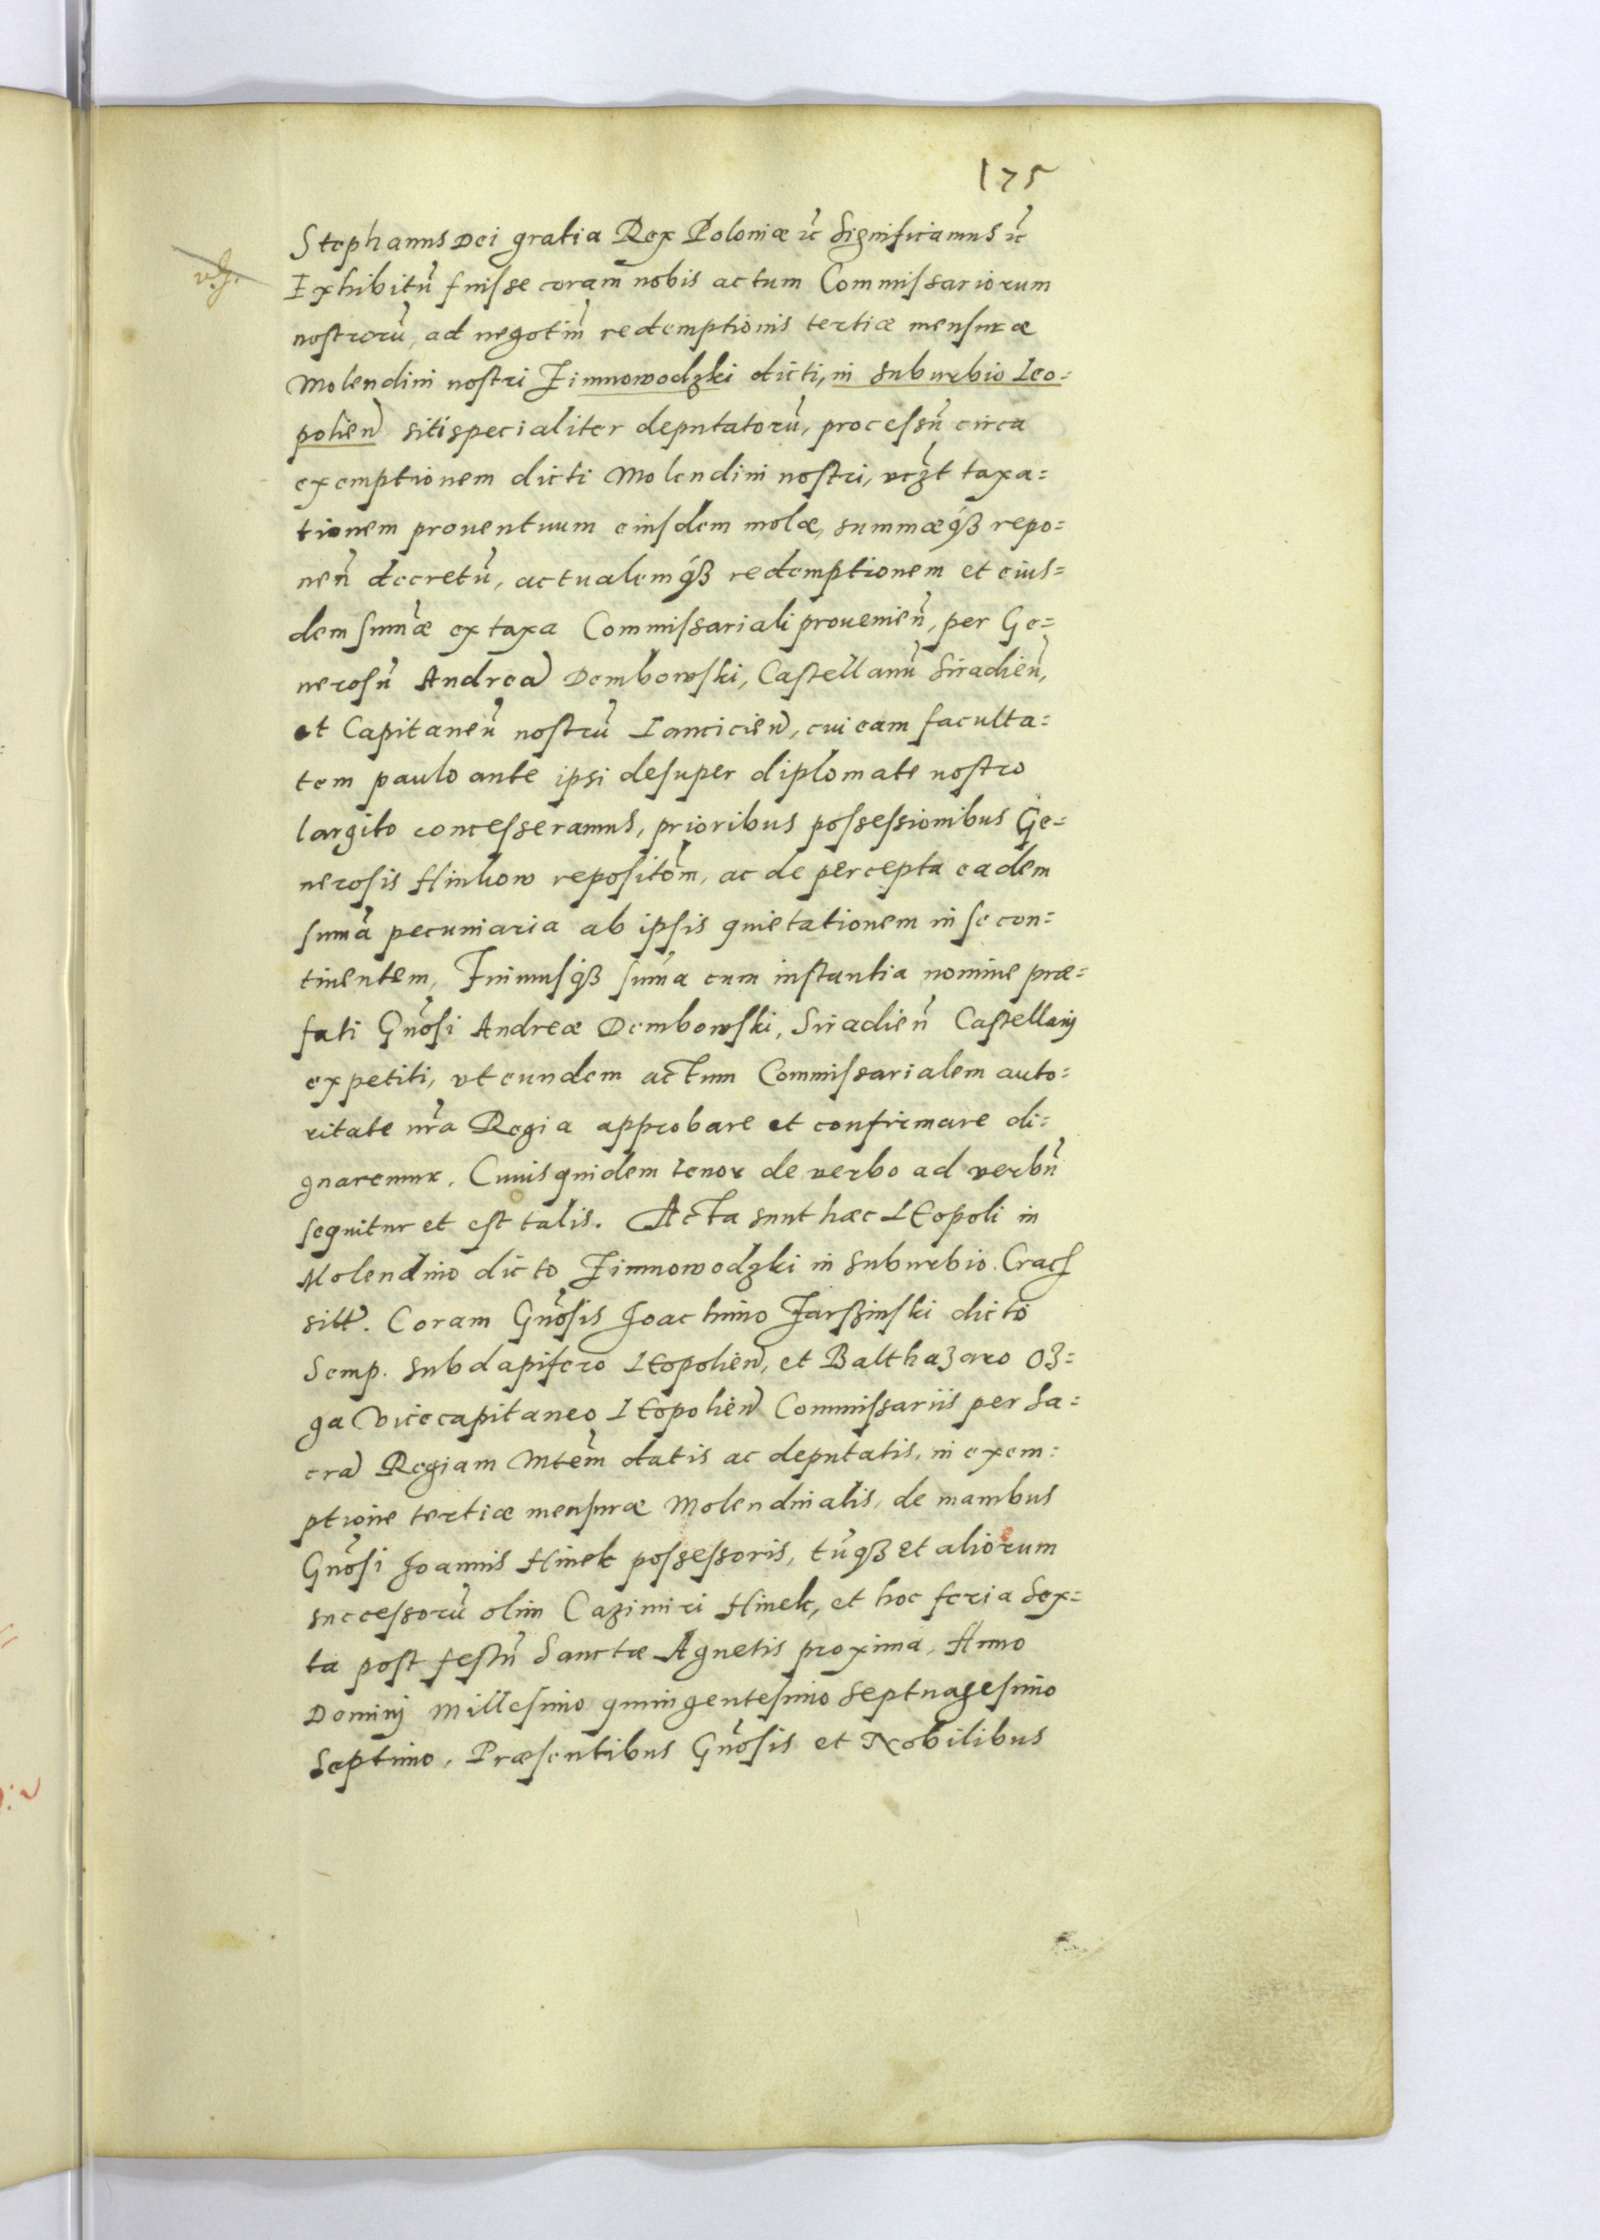 175
Stephanus Dei gratia Rex Poloniæ ꝛc̃ Significamus ꝛc̃
Exhibitũ fuisse coram nobis actum Commissariorum
nostrorũ, ad negotiũ redemptionis tertiæ mensuræ
Molendini nostri Zimnowodzki dicti, in suburbio Leo=
polien̄ siti specialiter deputatorũ, processũ circa
exemptionem dicti Molendini nostri, vczt taxa=
tionem prouentuum eiusdem molæ, summæqꝫ repo=
nen̄ decretũ, actualemqꝫ redemptionem et eius=
dem sum̃æ ex taxa Commissariali prouenien̄, per Ge=
nerosũ Andrea͂ Dembowski, Castellanũ Siradien̄,
et Capitaneũ nostrũ Lancicien̄, cui eam faculta=
tem paulo ante ipsi desuper diplomate nostro
largito concesseramus, prioribus possessionibus Ge=
nerosis Hinkow repositõm, ac de percepta eadem
sum̃a pecuniaria ab ipsis quietationem in se con=
tinentem, Fuimusqꝫ sum̃a cum instantia nomine præ=
fati Gñosi Andreæ Dembowski, Siradien̄ Castellanij
expetiti, vt eundem actum Commissarialem auto=
ritate nr̃a Regia approbare et confirmare di=
gnaremur. Cuius quidem tenor de verbo ad verbũ
sequitur et est talis. Acta sunt hæc Leopoli in
Molendino dicto Zimnowodzki in suburbio. Crac̄
sitt. Coram Gñosis Joachimo Jarßinski dicto
Semp. subdapifero Leopolien̄, et Balthazaro Oz=
ga Vicecapitaneo Leopolien̄ Commissariis per Sa=
cra͂ Regiam Mtem̃ datis ac deputatis, in exem=
ptione tertiæ mensuræ Molendinalis, de manibus
Gñosi Joannis Hinek possessoris, tũqꝫ et aliorum
successorũ olim Cazimiri Hinek, et hoc feria Sex=
ta post festũ Sanctæ Agnetis proxima, Anno
Dominj Millesimo quingentesimo Septuagesimo
Septimo. Præsentibus Gñosis et Nobilibus